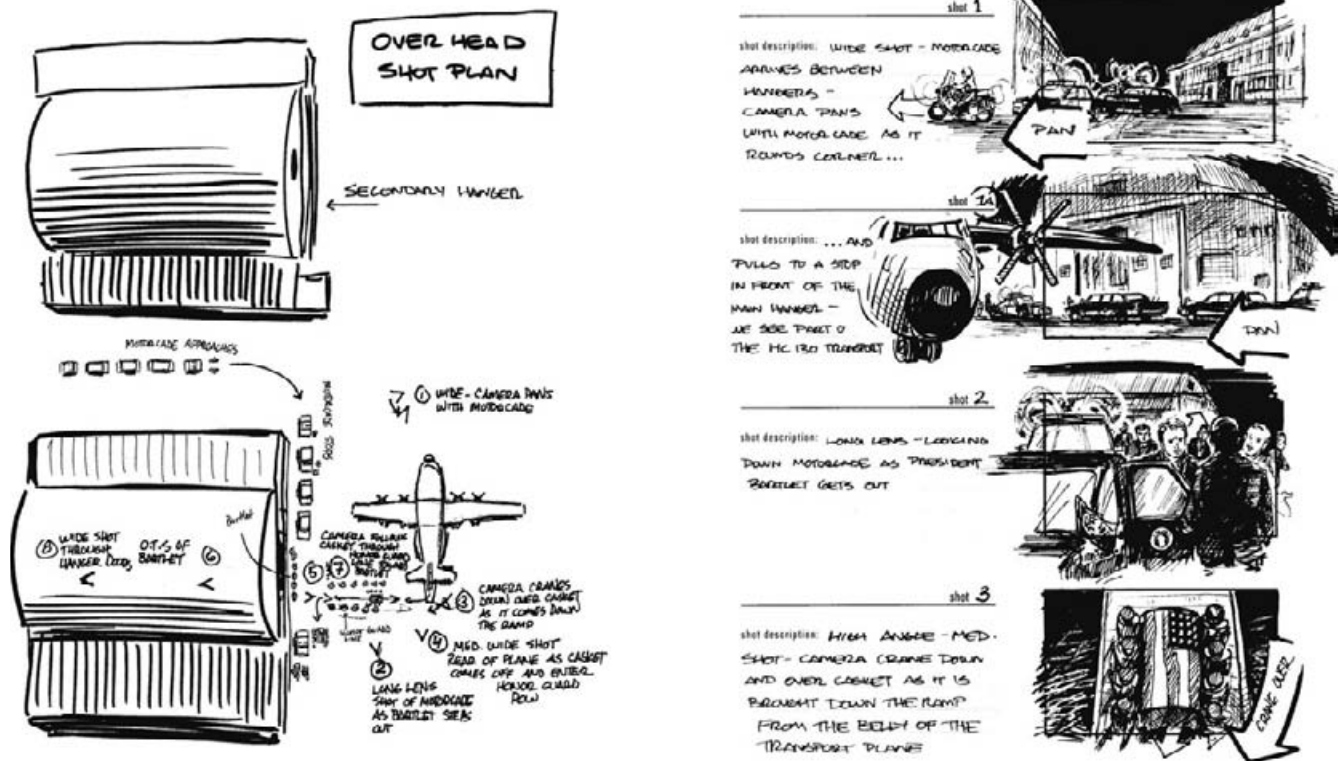 OVER HEAD
SHOT PLAN
SECONDARY HANGER
MOTORCADE APPROACHES
① WIDE - CAMERA PANS
WITH MOTORCADE
MOTORCADE STOPS
Bartlet
⑧ WIDE SHOT
THROUGH
HANGER DOORS
O.T.S OF
BARTLET
⑥
CAMERA FOLLOWS
CASKET THROUGH
HONOR GUARD
BARTLET
⑤ ⑦
HONOR GUARD
LINE
③ CAMERA CRANES
DOWN OVER CASKET
AS IT COMES DOWN
THE RAMP
④ MED. WIDE SHOT
REAR OF PLANE AS CASKET
COMES OFF AND ENTER
HONOR GUARD
ROW
②
LONG LENS
SHOT OF MOTORCADE
AS BARTLET STEPS
OUT
shot 1
shot description: WIDE SHOT - MOTORCADE
ARRIVES BETWEEN
HANGERS -
CAMERA PANS
WITH MOTORCADE AS IT
ROUNDS CORNER...
PAN
shot 1A
shot description: ...AND
PULLS TO A STOP
IN FRONT OF THE
MAIN HANGER -
WE SEE PART O
THE HC 130 TRANSPORT
PAN
shot 2
shot description: LONG LENS - LOOKING
DOWN MOTORCADE AS PRESIDENT
BARTLET GETS OUT
shot 3
shot description: HIGH ANGLE - MED.
SHOT - CAMERA CRANE DOWN
AND OVER CASKET AS IT IS
BROUGHT DOWN THE RAMP
FROM THE BELLY OF THE
TRANSPORT PLANE
CRANE OVER